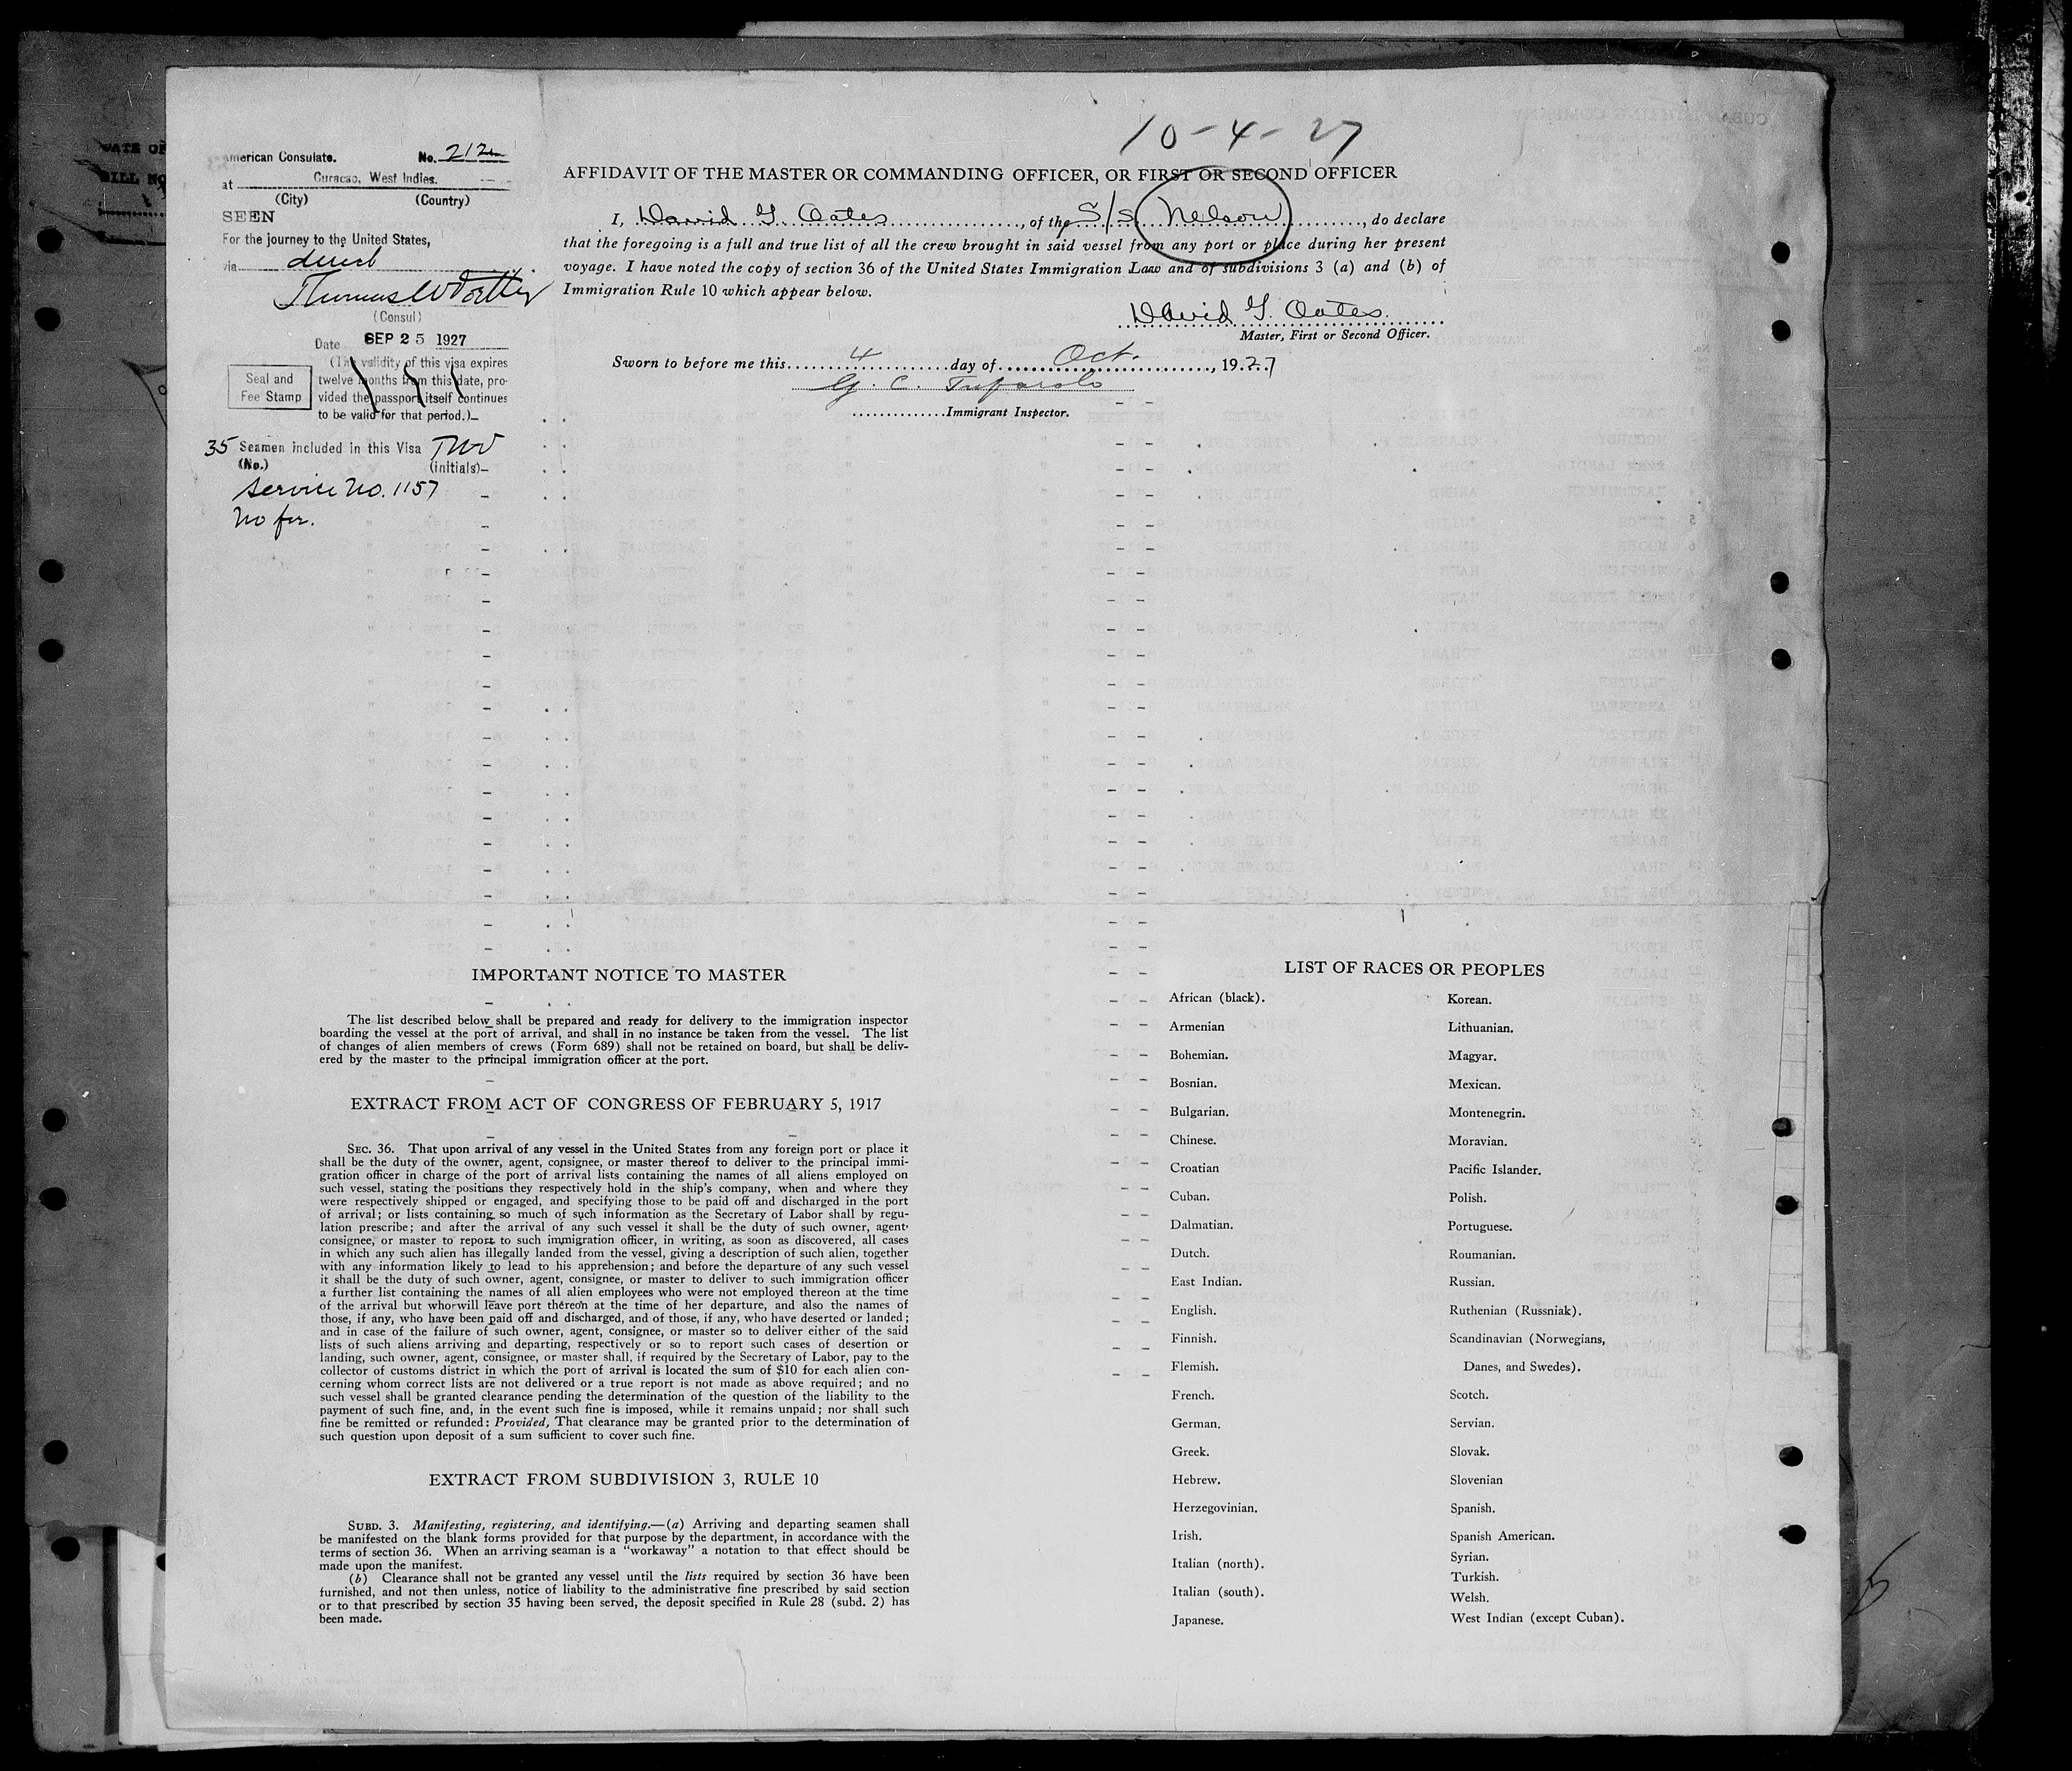 10-4-27
American Consulate. No. 212
at Curacao, West Indies.
(City) (Country)
SEEN
For the journey to the United States,
via direct
(Consul)
Date SEP 25 1927
(The validity of this visa expires
twelve months from this date, pro-
vided the passport itself continues
to be valid for that period.)
Seal and
Fee Stamp
35 Seamen included in this Visa TWV
(No.) (initials)
Service No. 1157
No fee.
AFFIDAVIT OF THE MASTER OR COMMANDING OFFICER, OR FIRST OR SECOND OFFICER
I, David G. Oates, of the S/S Nelson, do declare
that the foregoing is a full and true list of all the crew brought in said vessel from any port or place during her present
voyage. I have noted the copy of section 36 of the United States Immigration Law and of subdivisions 3 (a) and (b) of
Immigration Rule 10 which appear below.
David G. Oates.
Master, First or Second Officer.
Sworn to before me this 4 day of Oct., 1927
G. C.
Immigrant Inspector.
IMPORTANT NOTICE TO MASTER
The list described below shall be prepared and ready for delivery to the immigration inspector
boarding the vessel at the port of arrival, and shall in no instance be taken from the vessel. The list
of changes of alien members of crews (Form 689) shall not be retained on board, but shall be deliv-
ered by the master to the principal immigration officer at the port.
EXTRACT FROM ACT OF CONGRESS OF FEBRUARY 5, 1917
SEC. 36. That upon arrival of any vessel in the United States from any foreign port or place it
shall be the duty of the owner, agent, consignee, or master thereof to deliver to the principal immi-
gration officer in charge of the port of arrival lists containing the names of all aliens employed on
such vessel, stating the positions they respectively hold in the ship's company, when and where they
were respectively shipped or engaged, and specifying those to be paid off and discharged in the port
of arrival; or lists containing so much of such information as the Secretary of Labor shall by regu-
lation prescribe; and after the arrival of any such vessel it shall be the duty of such owner, agent,
consignee, or master to report to such immigration officer, in writing, as soon as discovered, all cases
in which any such alien has illegally landed from the vessel, giving a description of such alien, together
with any information likely to lead to his apprehension; and before the departure of any such vessel
it shall be the duty of such owner, agent, consignee, or master to deliver to such immigration officer
a further list containing the names of all alien employees who were not employed thereon at the time
of the arrival but who will leave port thereon at the time of her departure, and also the names of
those, if any, who have been paid off and discharged, and of those, if any, who have deserted or landed;
and in case of the failure of such owner, agent, consignee, or master so to deliver either of the said
lists of such aliens arriving and departing, respectively or so to report such cases of desertion or
landing, such owner, agent, consignee, or master shall, if required by the Secretary of Labor, pay to the
collector of customs district in which the port of arrival is located the sum of $10 for each alien con-
cerning whom correct lists are not delivered or a true report is not made as above required; and no
such vessel shall be granted clearance pending the determination of the question of the liability to the
payment of such fine, and, in the event such fine is imposed, while it remains unpaid; nor shall such
fine be remitted or refunded: Provided, That clearance may be granted prior to the determination of
such question upon deposit of a sum sufficient to cover such fine.
EXTRACT FROM SUBDIVISION 3, RULE 10
SUBD. 3. Manifesting, registering, and identifying.—(a) Arriving and departing seamen shall
be manifested on the blank forms provided for that purpose by the department, in accordance with the
terms of section 36. When an arriving seaman is a "workaway" a notation to that effect should be
made upon the manifest.
(b) Clearance shall not be granted any vessel until the lists required by section 36 have been
furnished, and not then unless, notice of liability to the administrative fine prescribed by said section
or to that prescribed by section 35 having been served, the deposit specified in Rule 28 (subd. 2) has
been made.
LIST OF RACES OR PEOPLES
African (black).
Armenian
Bohemian.
Bosnian.
Bulgarian.
Chinese.
Croatian
Cuban.
Dalmatian.
Dutch.
East Indian.
English.
Finnish.
Flemish.
French.
German.
Greek.
Hebrew.
Herzegovinian.
Irish.
Italian (north).
Italian (south).
Japanese.
Korean.
Lithuanian.
Magyar.
Mexican.
Montenegrin.
Moravian.
Pacific Islander.
Polish.
Portuguese.
Roumanian.
Russian.
Ruthenian (Russniak).
Scandinavian (Norwegians,
Danes, and Swedes).
Scotch.
Servian.
Slovak.
Slovenian
Spanish.
Spanish American.
Syrian.
Turkish.
Welsh.
West Indian (except Cuban).